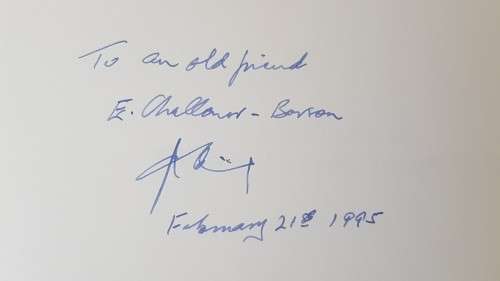 To an old friend
E. Challonor - Bovson
February 21st 1995